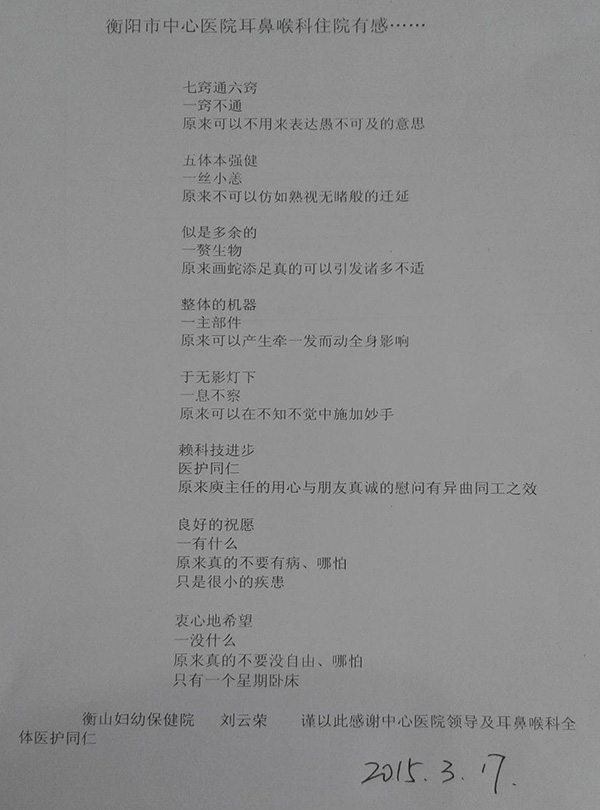 衡阳市中心医院耳鼻喉科住院有感……
七窍通六窍
一窍不通
原来可以不用来表达愚不可及的意思
五体本强健
一丝小恙
原来不可以仿如熟视无睹般的迁延
似是多余的
一赘生物
原来画蛇添足真的可以引发诸多不适
整体的机器
一主部件
原来可以产生牵一发而动全身影响
于无影灯下
一息不察
原来可以在不知不觉中施加妙手
赖科技进步
医护同仁
原来庾主任的用心与朋友真诚的慰问有异曲同工之效
良好的祝愿
一有什么
原来真的不要有病、哪怕
只是很小的疾患
衷心地希望
一没什么
原来真的不要没自由、哪怕
只有一个星期卧床
衡山妇幼保健院 刘云荣 谨以此感谢中心医院领导及耳鼻喉科全
体医护同仁
2015.3.17.